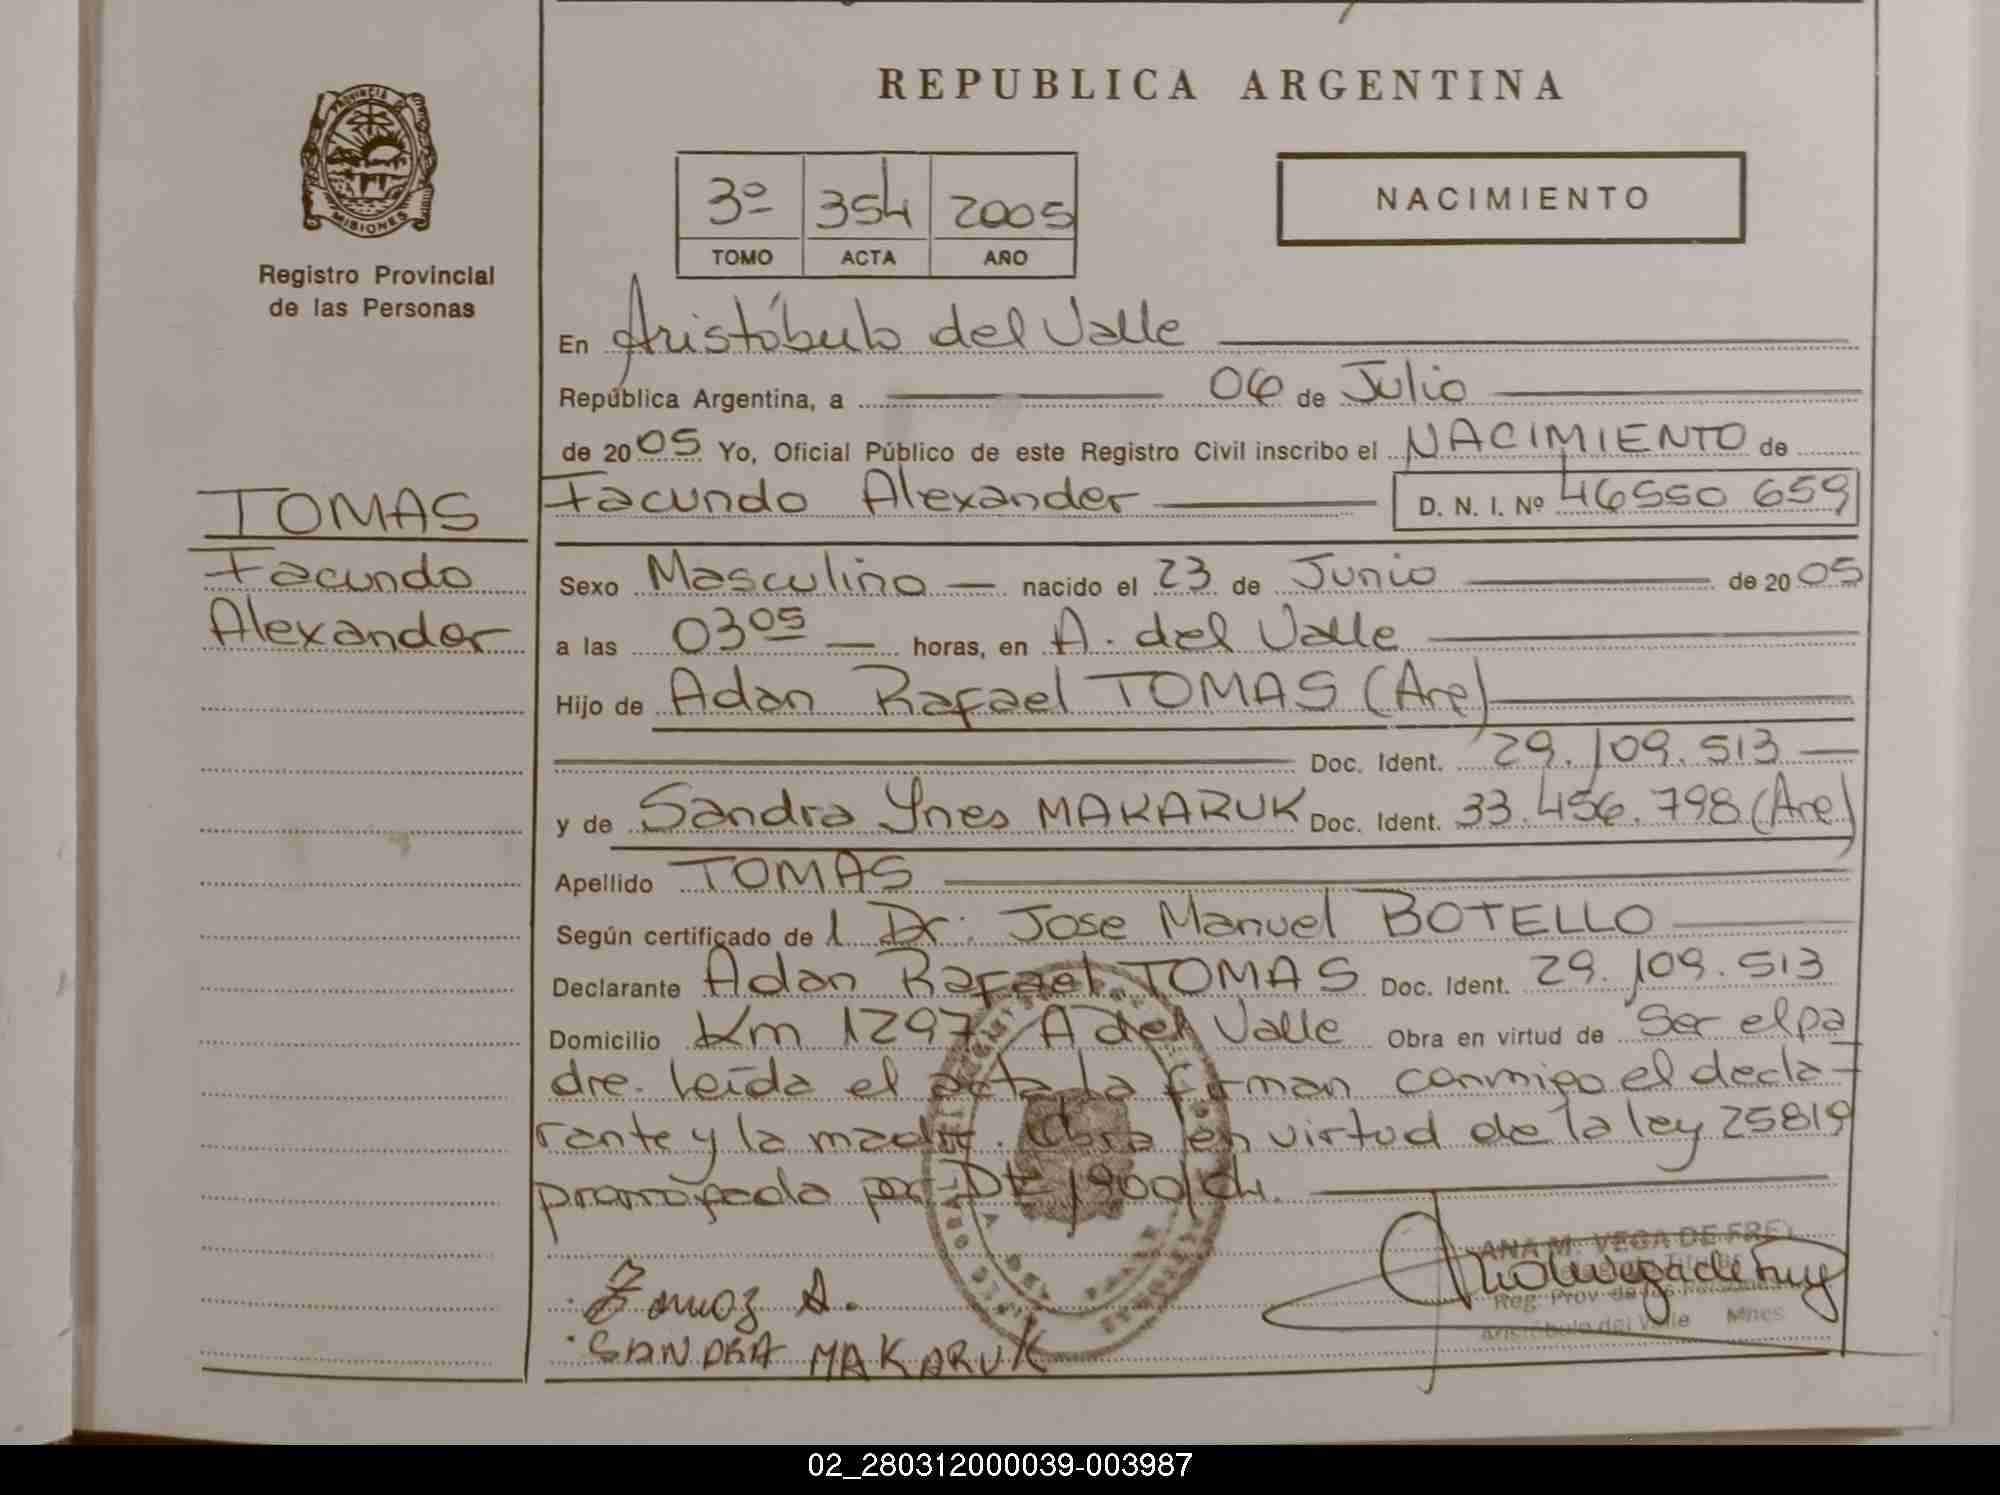 REPUBLICA ARGENTINA
PROVINCIA DE
MISIONES
Registro Provincial
de las Personas
3º 354 2005
TOMO ACTA AÑO
NACIMIENTO
En Aristóbulo del Valle
República Argentina, a 06 de Julio
de 2005 Yo, Oficial Público de este Registro Civil inscribo el NACIMIENTO de
Facundo Alexander D. N. I. Nº 46550 659
TOMAS
Facundo
Alexander
Sexo Masculino nacido el 23 de Junio de 2005
a las 03 05 horas, en A. del Valle
Hijo de Adan Rafael TOMAS (Arg)
Doc. Ident. 29.109.513
y de Sandra Ynes MAKARUK Doc. Ident. 33.456.798 (Arg)
Apellido TOMAS
Según certificado de l Dr. Jose Manuel BOTELLO
Declarante Adan Rafael TOMAS Doc. Ident. 29.109.513
Domicilio Km 1297 A del Valle Obra en virtud de Ser el pa
dre. leída el acta la firman conmigo el decla-
rante y la madre. Obra en virtud de la ley 25819
prorrogada por DE 1900/04.
ANA M. VEGA DE FREY
Titular
Reg. Prov. de las Personas
Aristóbulo del Valle Mnes
Tomas A.
SANDRA MAKARUK
02_280312000039-003987